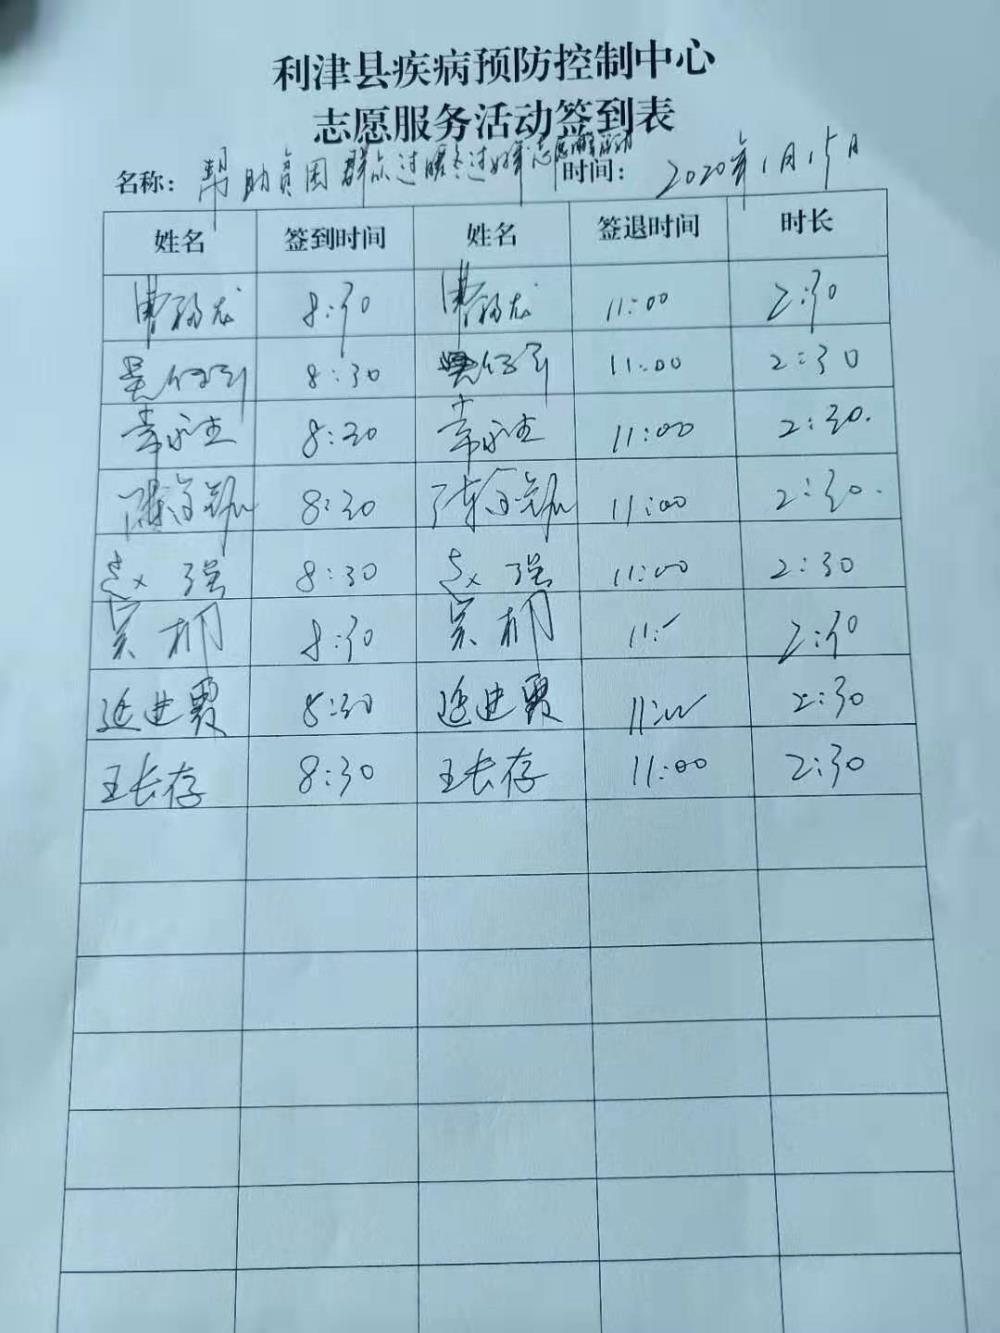 利津县疾病预防控制中心
志愿服务活动签到表
名称： 帮助贫困群众过暖冬过好年志愿服务活动 时间： 2020年1月15日
姓名 签到时间 姓名 签退时间 时长
8:30 11:00 2:30
8:30 11:00 2:30
8:30 11:00 2:30.
8:30 11:00 2:30.
赵强 8:30 赵强 11:00 2:30
8:30 11:- 2:30
延进霞 8:30 延进霞 11:00 2:30
王长存 8:30 王长存 11:00 2:30